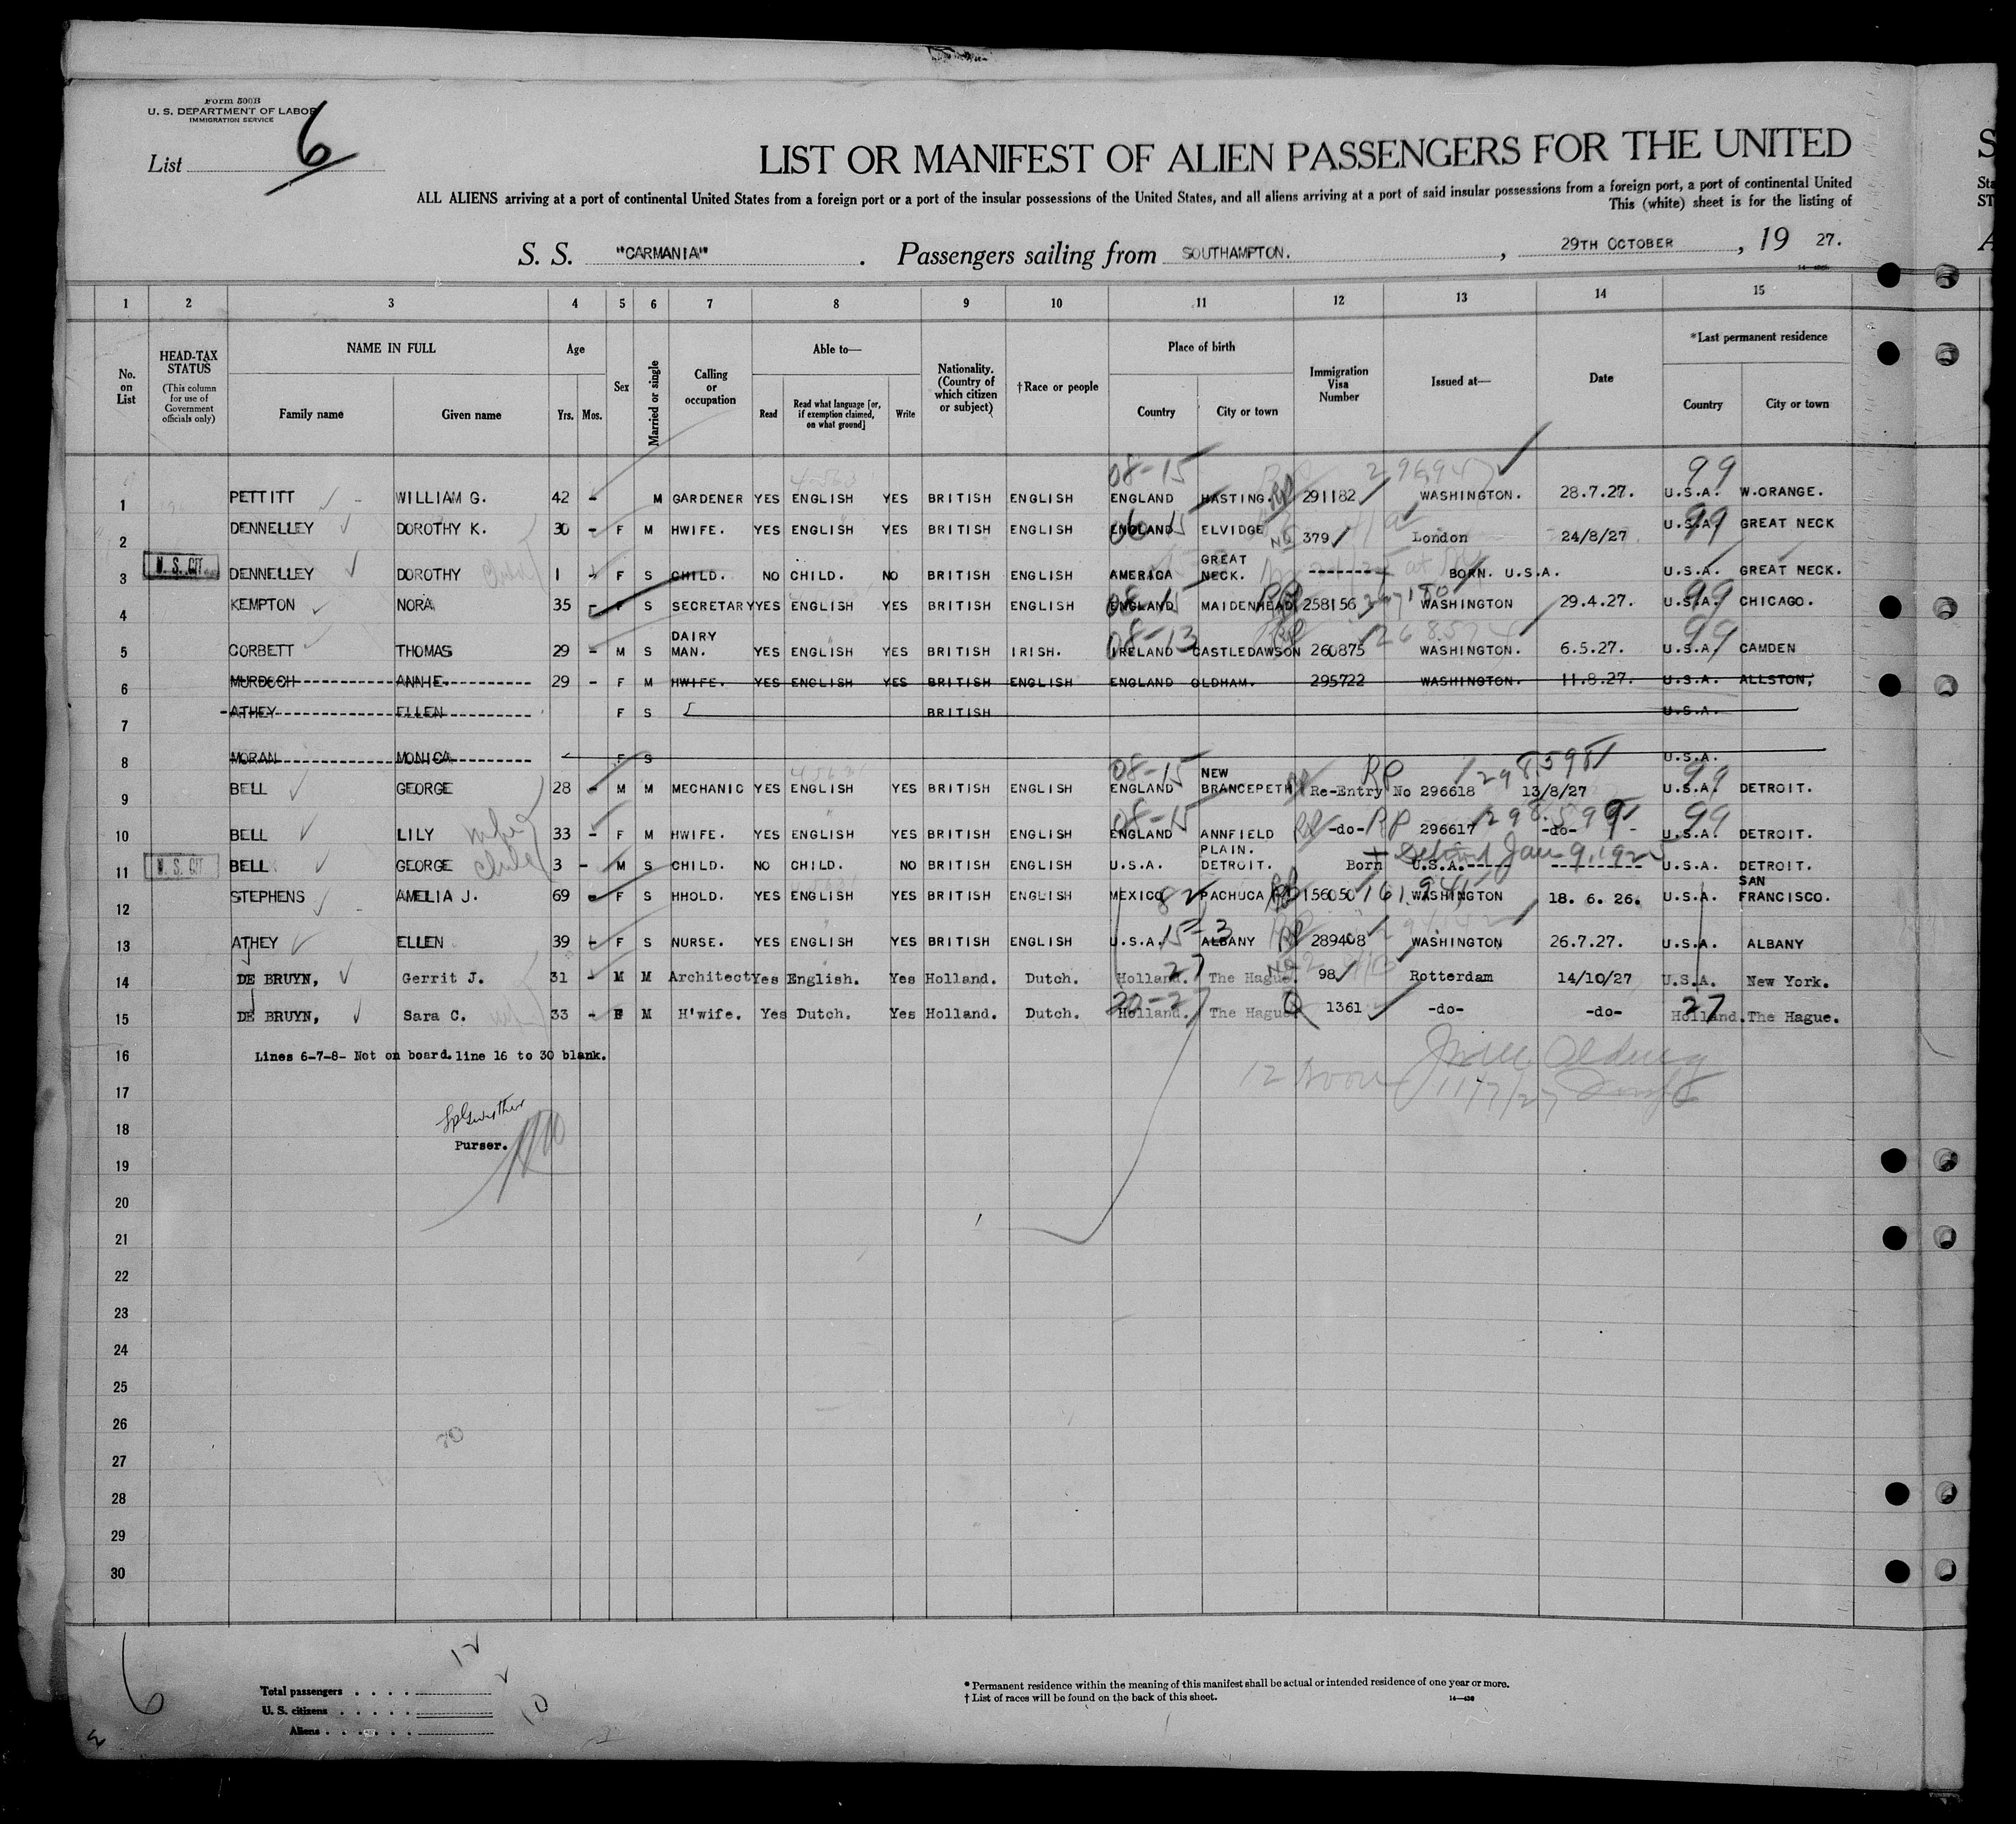 Form 500B
U. S. DEPARTMENT OF LABOR
IMMIGRATION SERVICE
List 6
LIST OR MANIFEST OF ALIEN PASSENGERS FOR THE UNITED
ALL ALIENS arriving at a port of continental United States from a foreign port or a port of the insular possessions of the United States, and all aliens arriving at a port of said insular possessions from a foreign port, a port of continental United
This (white) sheet is for the listing of
S. S. "CARMANIA" . Passengers sailing from SOUTHAMPTON. , 29TH OCTOBER , 19 27.
1 2 3 4 5 6 7 8 9 10 11 12 13 14 15
No. on List
HEAD-TAX STATUS (This column for use of Government officials only)
NAME IN FULL
Family name Given name
Age
Yrs. Mos.
Sex
Married or single
Calling or occupation
Able to—
Read Read what language [or, if exemption claimed, on what ground] Write
Nationality. (Country of which citizen or subject)
†Race or people
Place of birth
Country City or town
Immigration Visa Number
Issued at—
Date
*Last permanent residence
Country City or town
08-15 99
1 PETTITT WILLIAM G. 42 - M GARDENER YES ENGLISH YES BRITISH ENGLISH ENGLAND HASTING. RP 291182 WASHINGTON. 28.7.27. U.S.A. W.ORANGE.
2 DENNELLEY DOROTHY K. 30 - F M HWIFE. YES ENGLISH YES BRITISH ENGLISH ENGLAND ELVIDGE 379 London 24/8/27 U.S.A. 99 GREAT NECK
3 U. S. CIT. DENNELLEY DOROTHY 1 - F S CHILD. NO CHILD. NO BRITISH ENGLISH AMERICA GREAT NECK. --------- BORN. U.S.A. U.S.A. GREAT NECK.
4 KEMPTON NORA 35 - F S SECRETARY YES ENGLISH YES BRITISH ENGLISH ENGLAND MAIDENHEAD RP 258156 WASHINGTON 29.4.27. U.S.A. 99 CHICAGO.
08-13 99
5 CORBETT THOMAS 29 - M S DAIRY MAN. YES ENGLISH YES BRITISH IRISH. IRELAND CASTLEDAWSON 260875 WASHINGTON. 6.5.27. U.S.A. CAMDEN
6 MURDOCH ANNIE. 29 - F M HWIFE. YES ENGLISH YES BRITISH ENGLISH ENGLAND OLDHAM. 295722 WASHINGTON. 11.8.27. U.S.A. ALLSTON,
7 ATHEY ELLEN F S BRITISH U.S.A.
8 MORAN MONICA F S U.S.A.
08-15 RP 298598 99
9 BELL GEORGE 28 - M M MECHANIC YES ENGLISH YES BRITISH ENGLISH ENGLAND NEW BRANCEPETH Re-Entry No 296618 13/8/27 U.S.A. DETROIT.
08-15 RP 99
10 BELL LILY wife 33 - F M HWIFE. YES ENGLISH YES BRITISH ENGLISH ENGLAND ANNFIELD PLAIN. -do- 296617 -do- - U.S.A. DETROIT.
11 U. S. CIT BELL GEORGE child 3 - M S CHILD. NO CHILD. NO BRITISH ENGLISH U.S.A. DETROIT. Born U.S.A.----- Detroit Jan 9, 1925 ---------- U.S.A. DETROIT.
12 STEPHENS AMELIA J. 69 - F S HHOLD. YES ENGLISH YES BRITISH ENGLISH MEXICO 82 PACHUCA RP 156050 WASHINGTON 18. 6. 26. U.S.A. SAN FRANCISCO.
13 ATHEY ELLEN 39 - F S NURSE. YES ENGLISH YES BRITISH ENGLISH U.S.A. 15-3 ALBANY RP 289408 WASHINGTON 26.7.27. U.S.A. ALBANY
14 DE BRUYN, Gerrit J. 31 - M M Architect Yes English. Yes Holland. Dutch. Holland. 27 The Hague. 98 Rotterdam 14/10/27 U.S.A. New York.
15 DE BRUYN, Sara C. 33 - F M H'wife. Yes Dutch. Yes Holland. Dutch. Holland. The Hague Q 1361 -do- -do- 27 Holland. The Hague.
16 Lines 6-7-8- Not on board. line 16 to 30 blank.
17 11/7/27
18
Purser.
19
20
21
22
23
24
25
26
27
28
29
30
6
12
Total passengers . . . .
2
U. S. citizens . . . . .
10
Aliens . . . . . .
* Permanent residence within the meaning of this manifest shall be actual or intended residence of one year or more.
† List of races will be found on the back of this sheet.
14—430